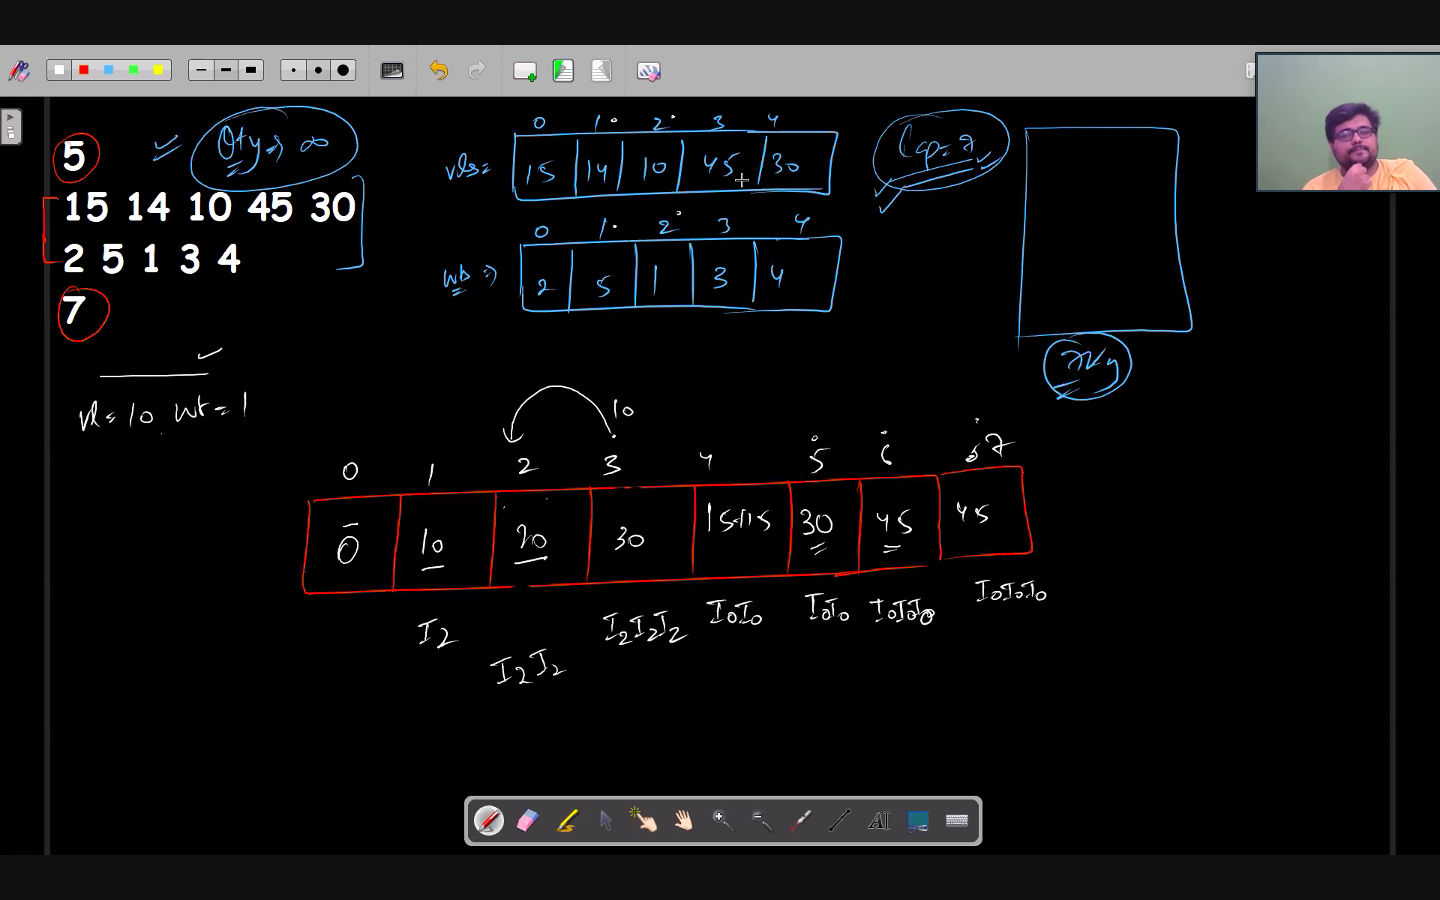 5
Qty => ∞
15 14 10 45 30
2 5 1 3 4
7
0 1 2 3 4
vls = 15 14 10 45 30
Cap = 7
0 1 2 3 4
wt => 2 5 1 3 4
7Kg
vl = 10 wt = 1
10
0 1 2 3 4 5 6 7
0 10 20 30 15+15 30 45 45
I2 I2I2 I2I2I2 I0I0 I0I0 I0I0I0 I0I0I0
AI